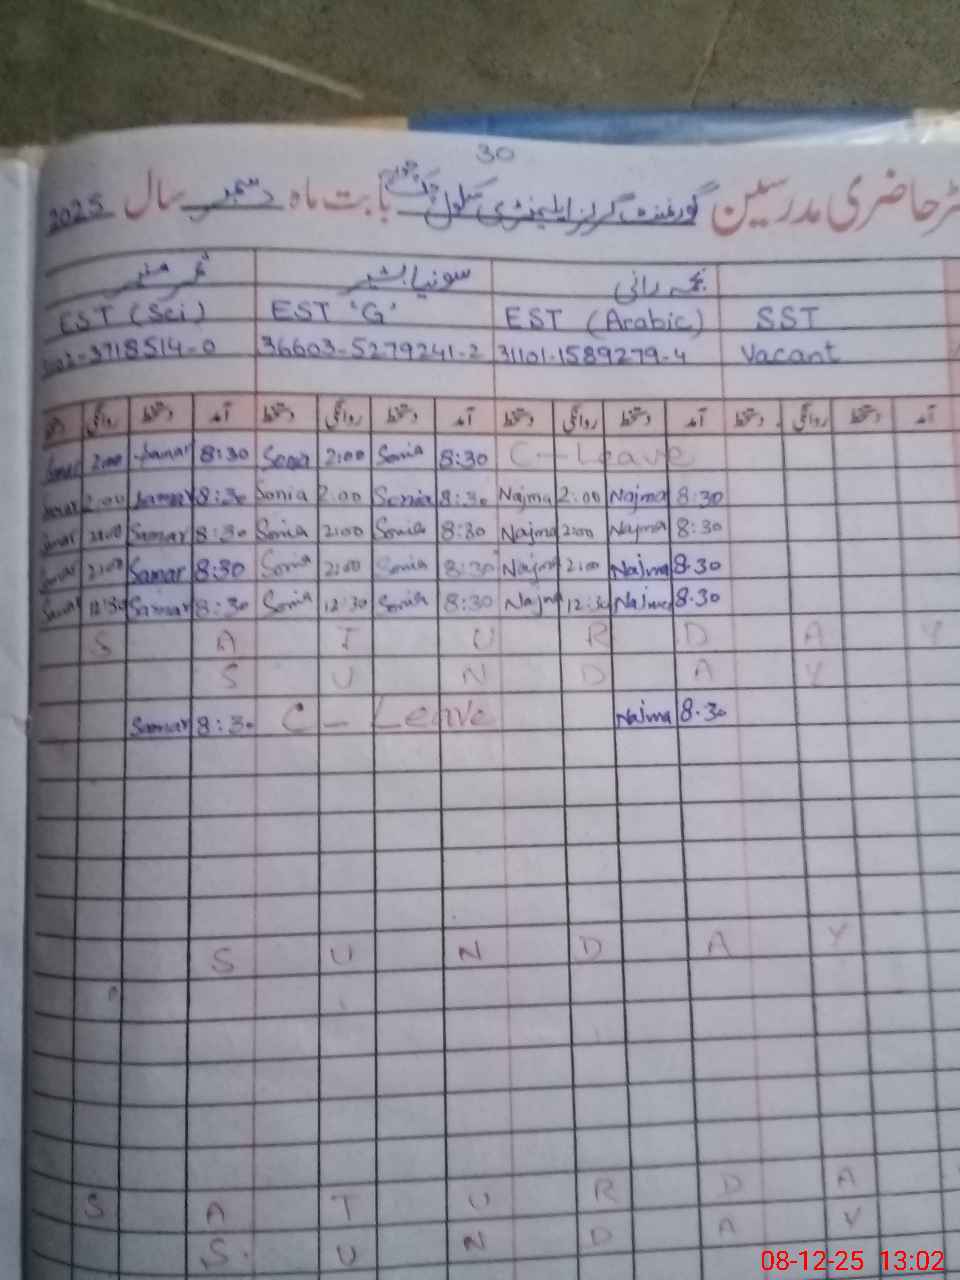 30
رجسٹر حاضری مدرسین گورنمنٹ گرلز ایلیمنٹری سکول چک بابت ماہ دسمبر سال 2025
نجمہ رانی سونیا بشیر ثمر منیر
EST (Sci) EST 'G' EST (Arabic) SST
3718514-0 36603-5279241-2 31101-1589279-4 Vacant
روانگی دستخط آمد دستخط روانگی دستخط آمد دستخط روانگی دستخط آمد دستخط روانگی دستخط آمد
Samar 2:00 Samar 8:30 Sonia 2:00 Sonia 8:30 C-Leave
Samar 2:00 Samar 8:30 Sonia 2:00 Sonia 8:30 Najma 2:00 Najma 8:30
Samar 2:00 Samar 8:30 Sonia 2:00 Sonia 8:30 Najma 2:00 Najma 8:30
Samar 2:00 Samar 8:30 Sonia 2:00 Sonia 8:30 Najma 2:00 Najma 8.30
Samar 12:30 Samar 8:30 Sonia 12:30 Sonia 8:30 Najma 12:30 Najma 8.30
S A T U R D A Y
S U N D A Y
Samar 8:30 C-Leave Najma 8.30
S U N D A Y
S A T U R D A
S U N D A Y
08-12-25 13:02